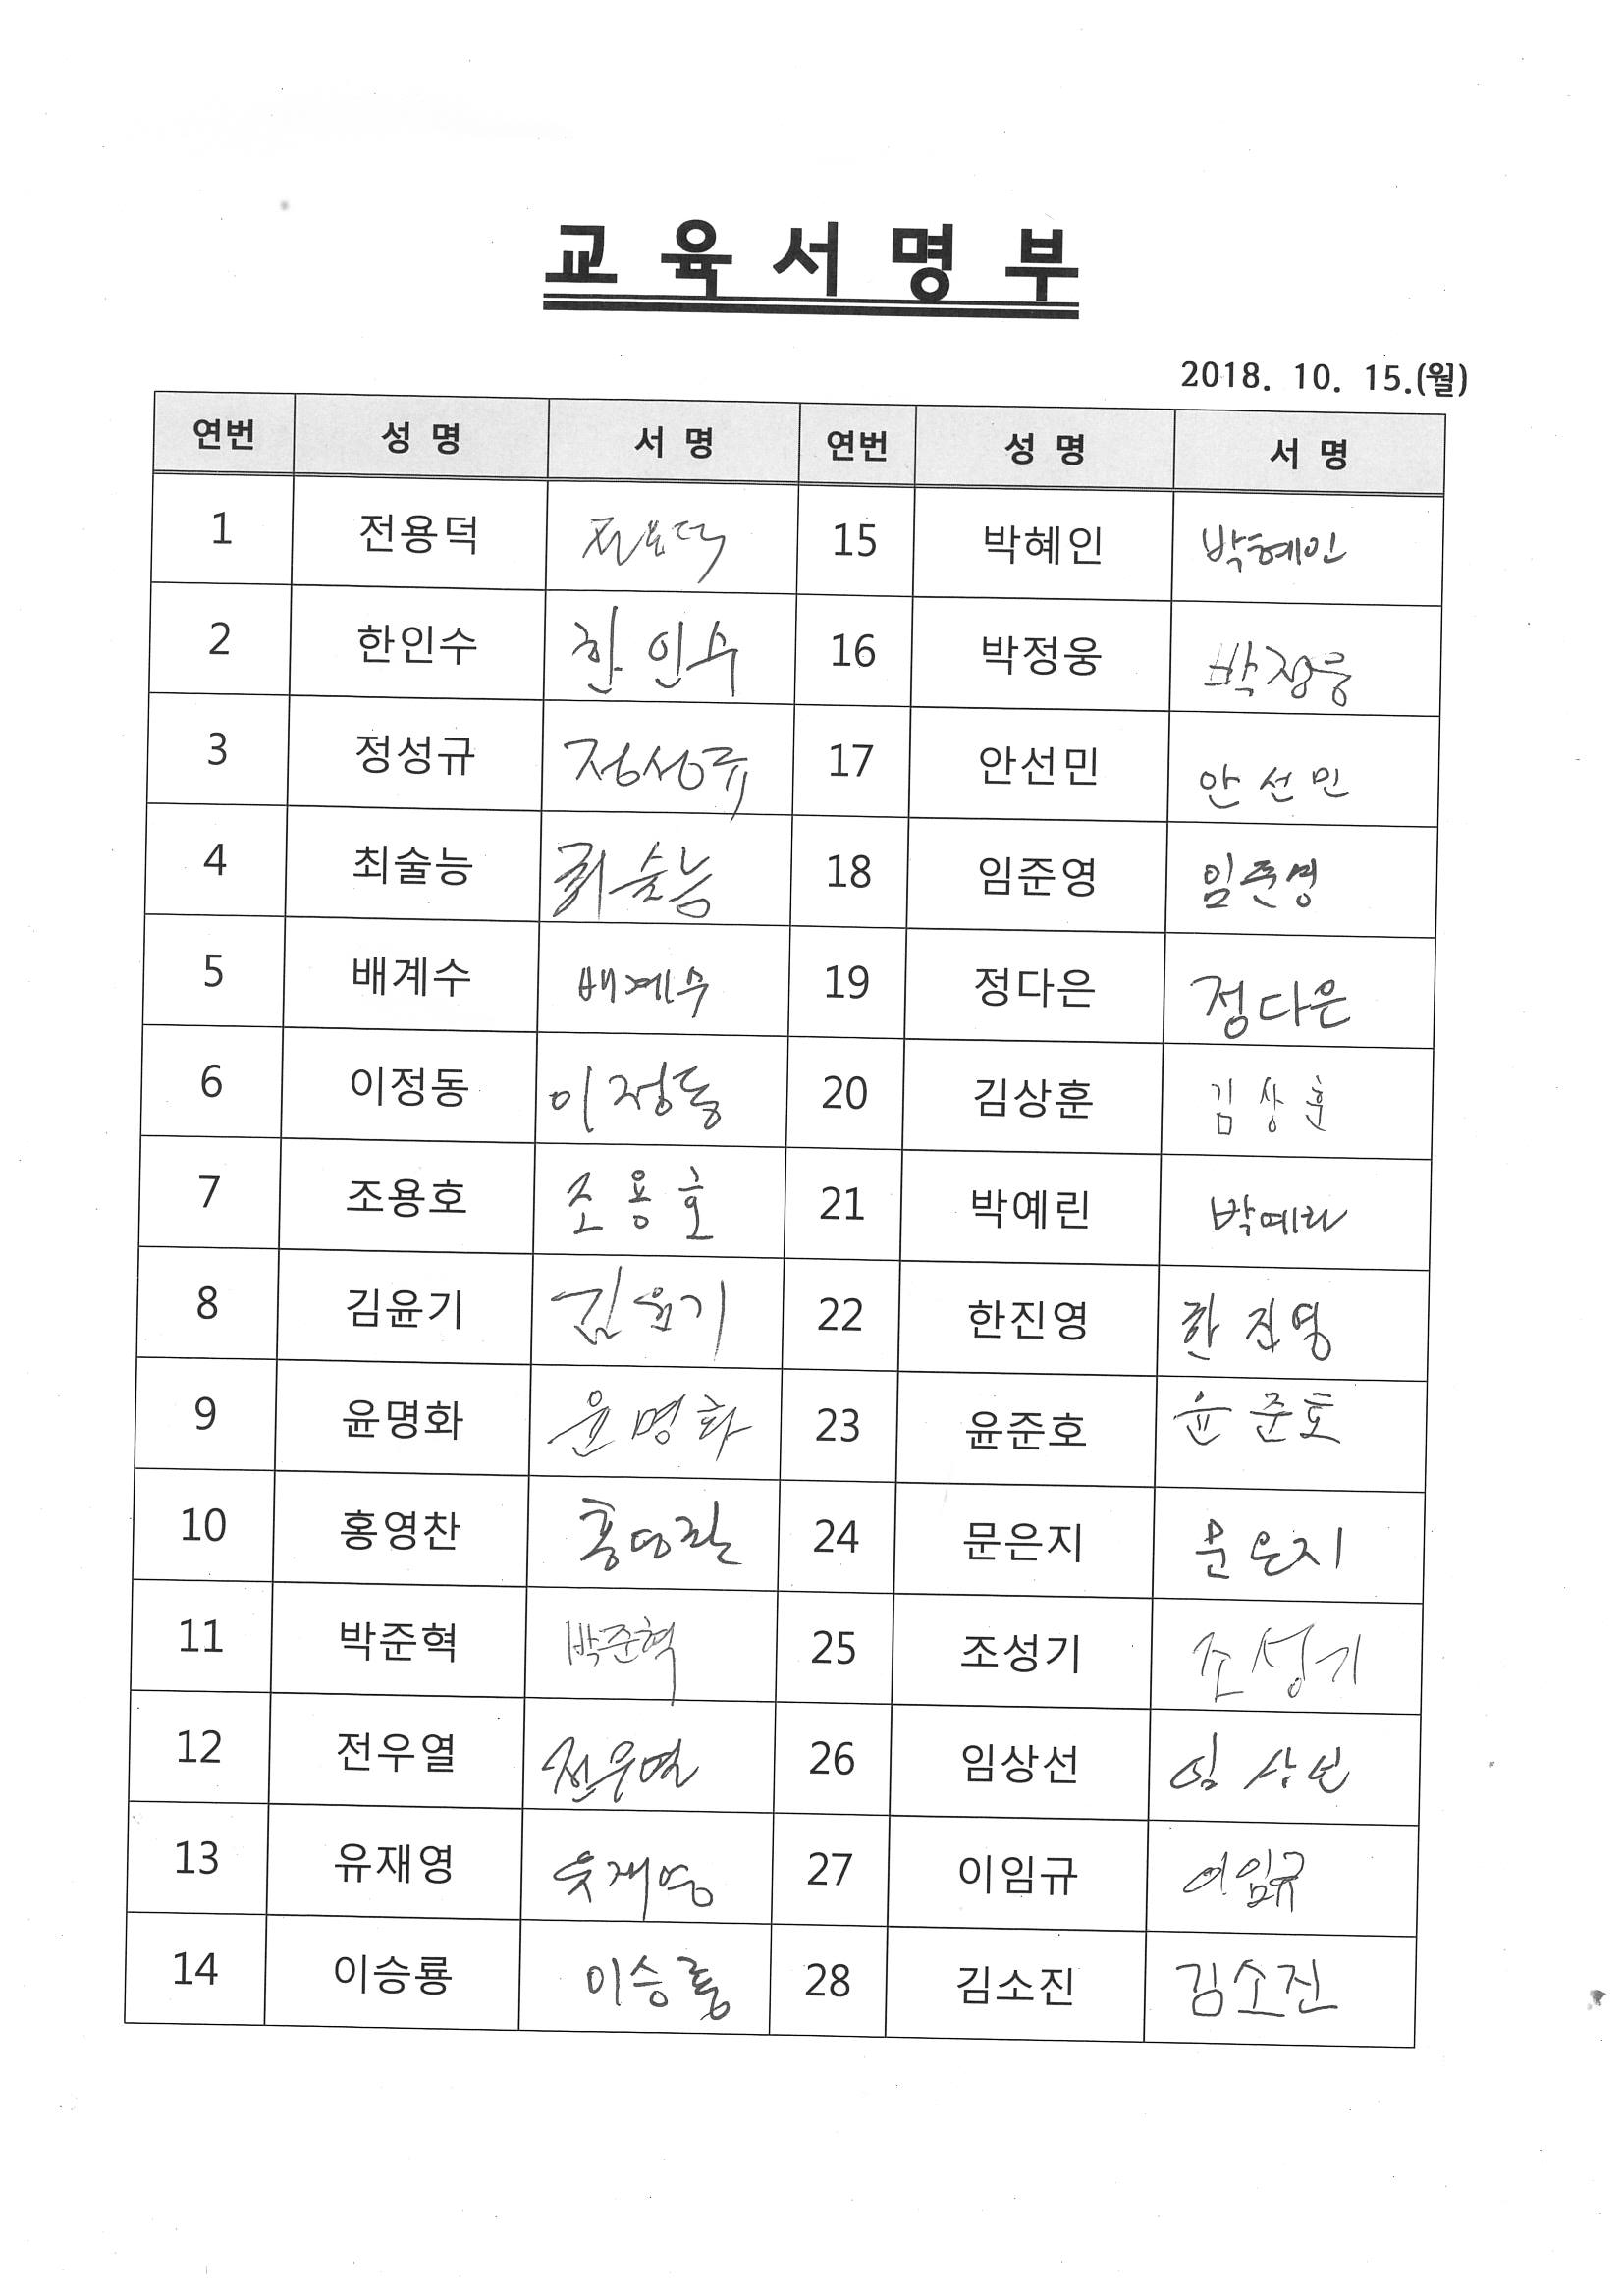 교 육 서 명 부
2018. 10. 15.(월)
연번 성 명 서 명 연번 성 명 서 명
1 전용덕 전용덕 15 박혜인 박혜인
2 한인수 한인수 16 박정웅 박정웅
3 정성규 정성규 17 안선민 안선민
4 최술능 최술능 18 임준영 임준영
5 배계수 배계수 19 정다은 정다은
6 이정동 이정동 20 김상훈 김상훈
7 조용호 조용호 21 박예린 박예린
8 김윤기 김윤기 22 한진영 한진영
9 윤명화 윤명화 23 윤준호 윤준호
10 홍영찬 홍영찬 24 문은지 문은지
11 박준혁 박준혁 25 조성기 조성기
12 전우열 전우열 26 임상선 임상선
13 유재영 유재영 27 이임규 이임규
14 이승룡 이승룡 28 김소진 김소진